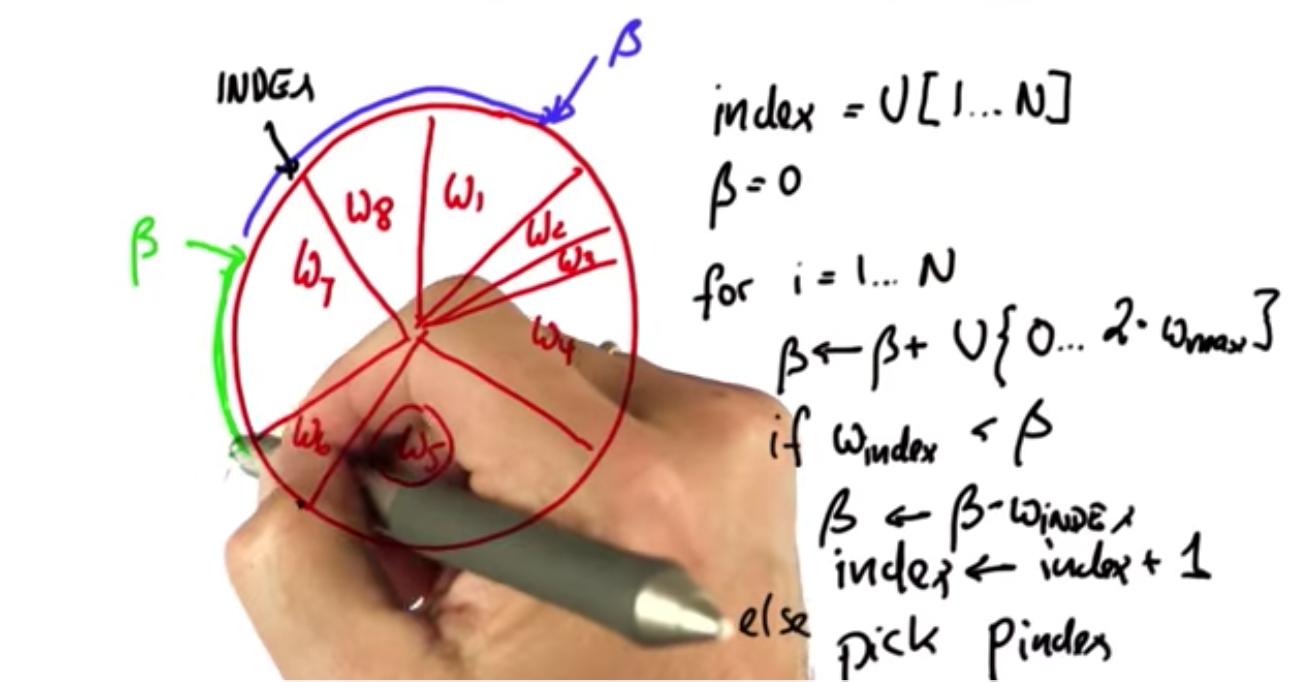 β
INDEX
ω8
ω1
β
ω2
ω7
ω3
ω4
ω6
ω5
index = U[1... N]
β = 0
for i = 1... N
β ← β + U{0... 2·ωmax}
if ωindex < β
β ← β - ωINDEX
index ← index + 1
else
pick pindex